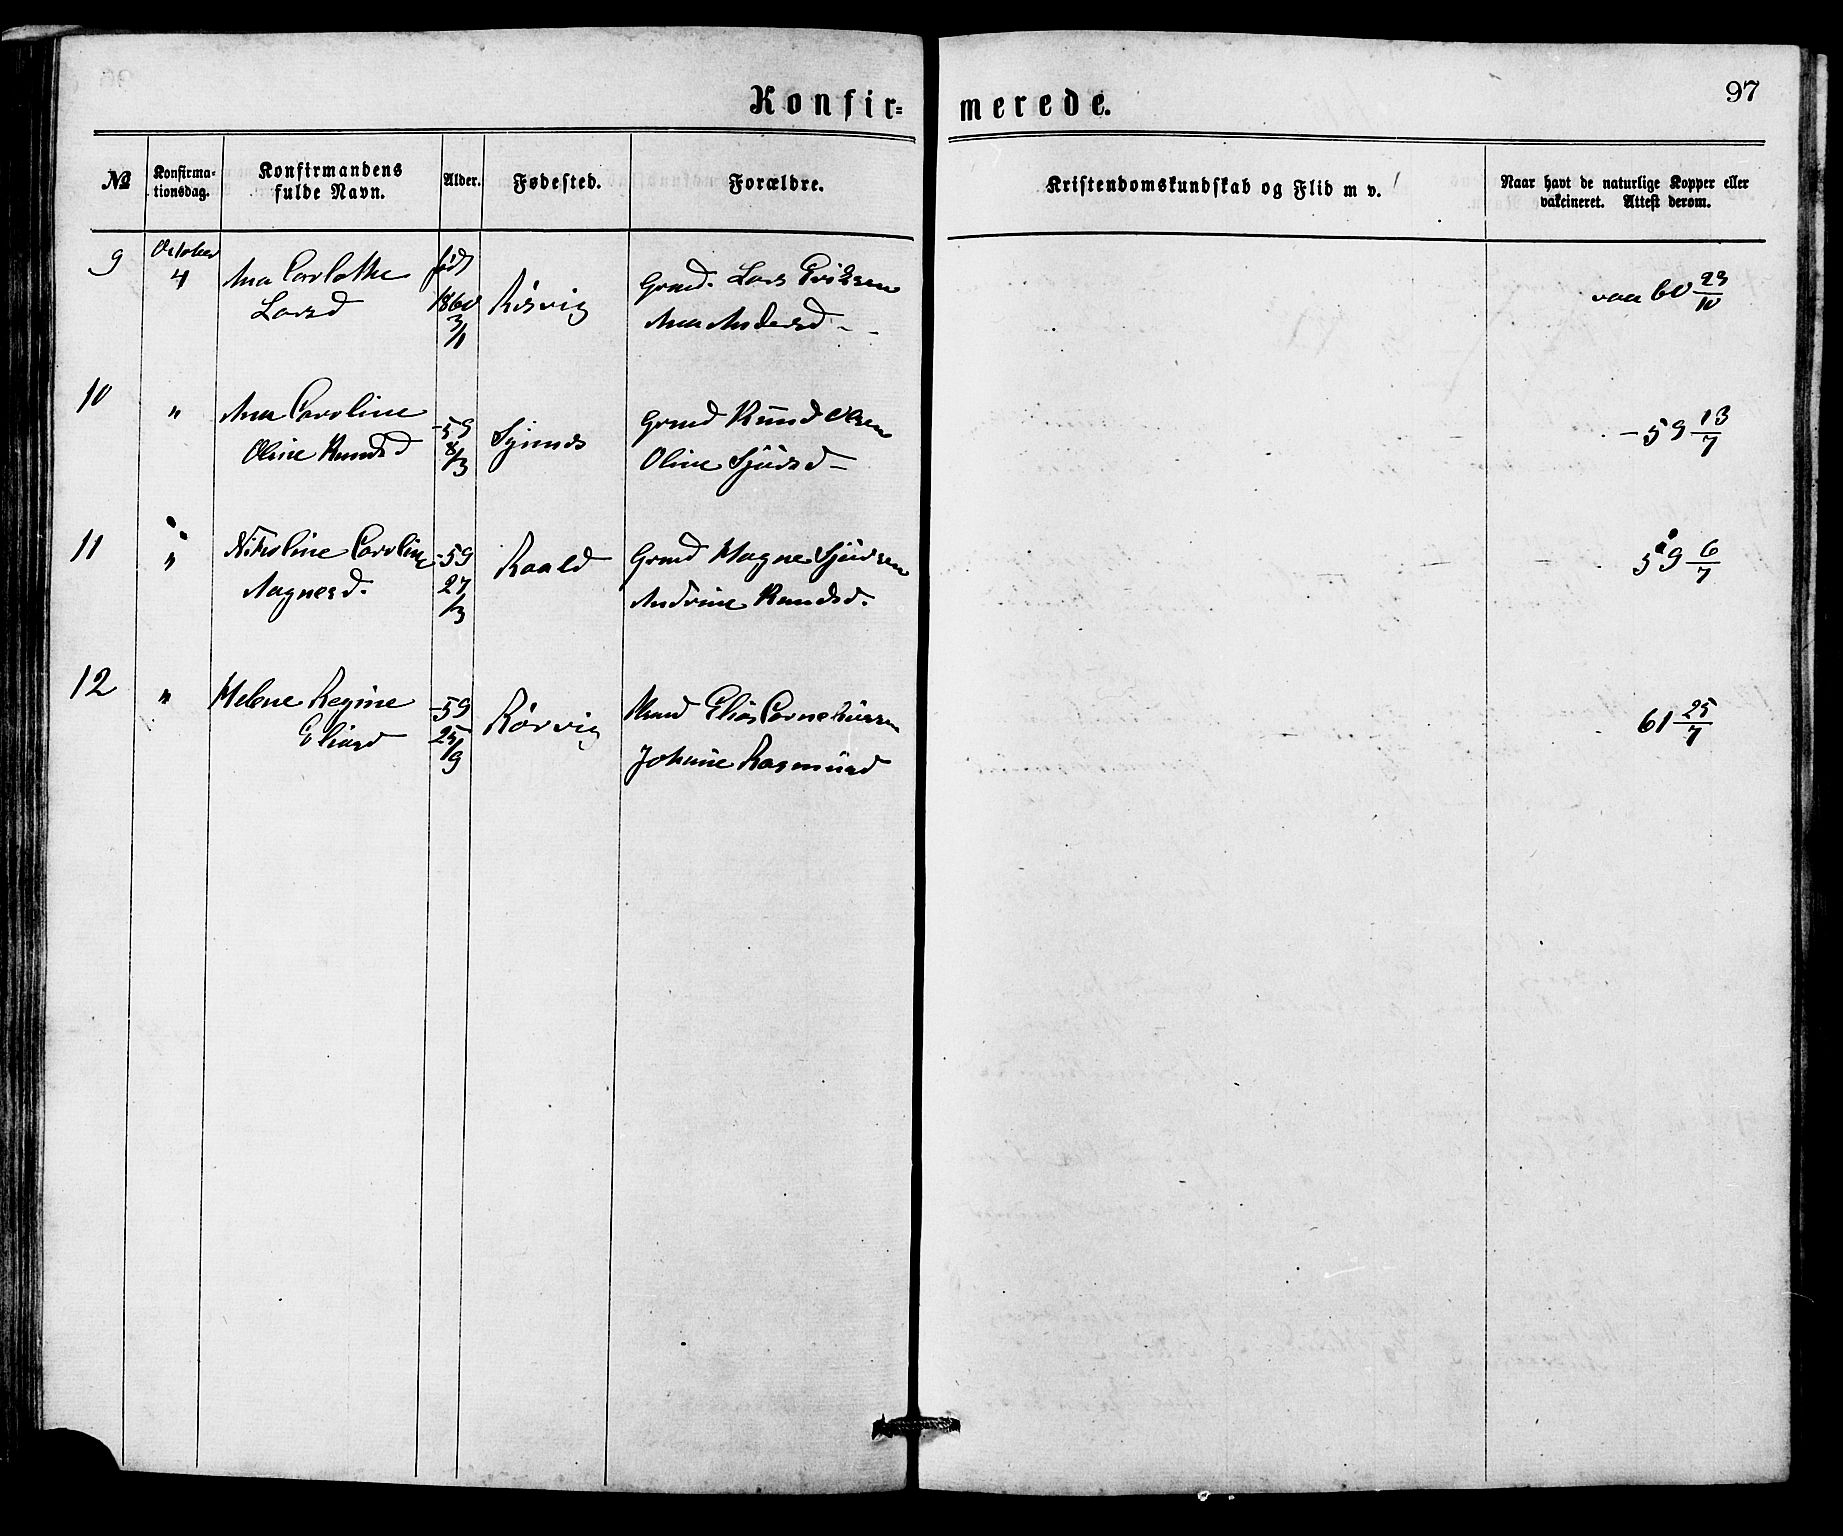 Konfir=
merede.
97
№
Konfirma-
tionsdag.
Konfirmandens
fulde Navn.
Alder.
Fødested.
Forældre.
Kristendomskundskab og Flid m v.
Naar havt de naturlige Kopper eller
vakcineret. Attest derom.
9
October
4
Ana
Larsd
født
1860
3/1
Risvig
Grmd. Lars Eriksen
Ana Andersd -
vaa 60 23/10
10
"
Ana Caroline
Oline Knudsd
-59
8/3
Synnes
Grmd Knud Olsen
Oline Sjursd -
- 59 13/7
11
"
Nikoline Caroline
Magnesd.
-59
27/3
Roald
Grmd Magne Sjursen
Andrine Knudsd.
59 6/7
12
"
Helene Regine
Eliasd
-59
25/9
Rørvig
Elias Corneliussen
Johanne Rasmusd
61 25/7